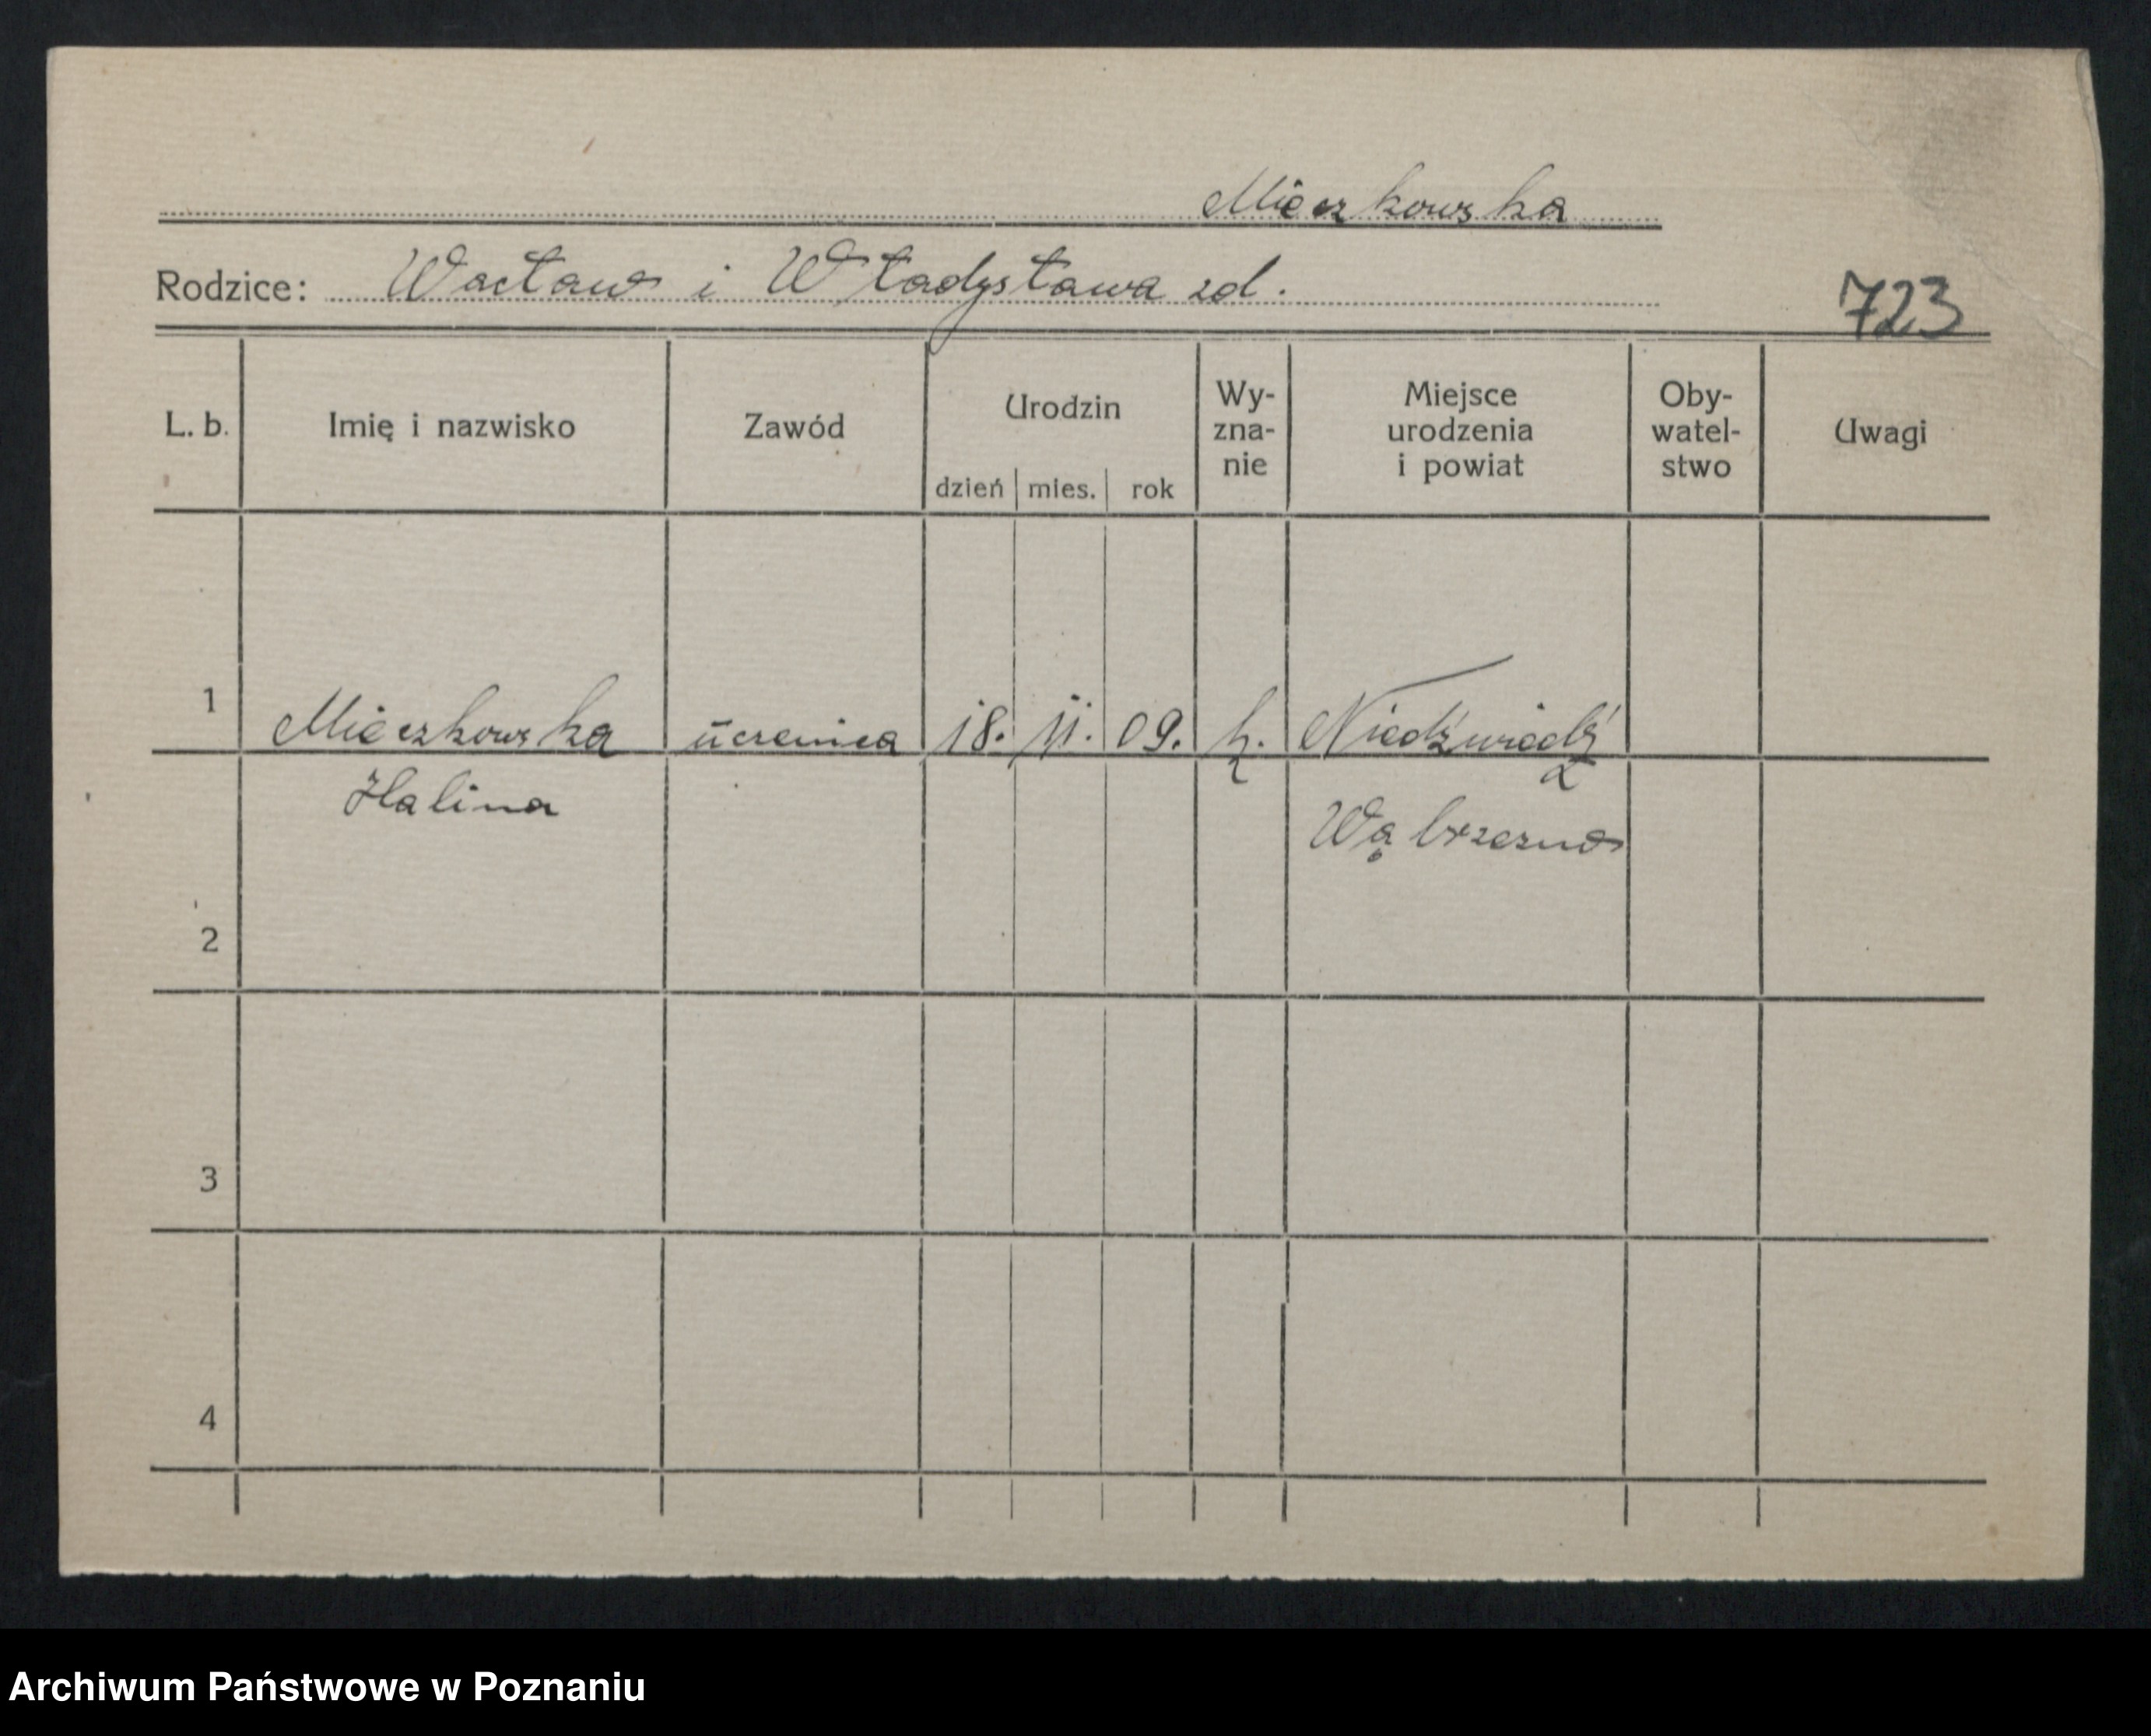 Mieczkowska
Rodzice: Wacław i Władysława zd.
723
L. b. Imię i nazwisko Zawód Urodzin dzień mies. rok Wy-zna-nie Miejsce urodzenia i powiat Oby-watel-stwo Uwagi
1 Mieczkowska uczenica 18. 11. 09. k. Niedźwiedź
Halina Wąbrzeźno
2
3
4
Archiwum Państwowe w Poznaniu